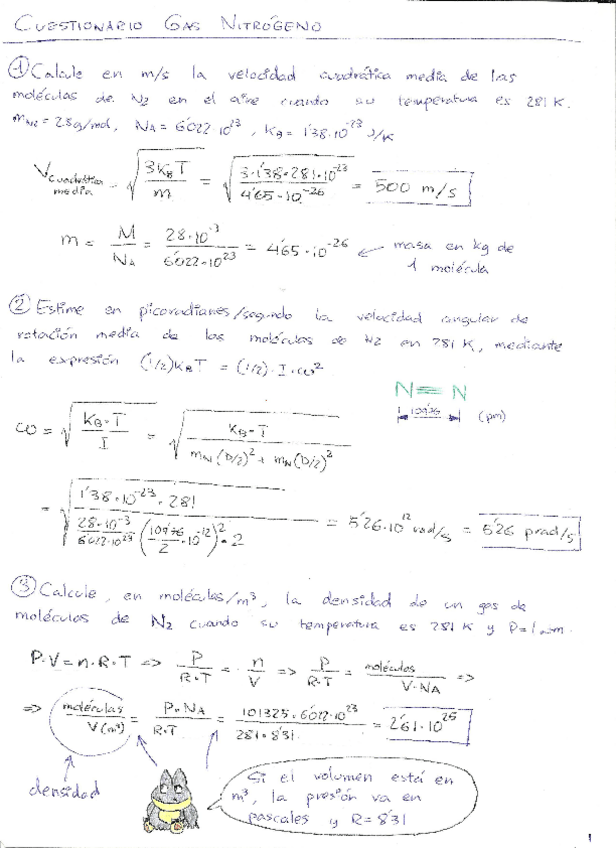 CUESTIONARIO GAS NITRÓGENO
① Calcule en m/s la velocidad cuadrática media de las
moléculas de N₂ en el aire cuando su temperatura es 281 K.
m_N2 = 28 g/mol, N_A = 6'022·10²³, K_B = 1'38·10⁻²³ J/K
V cuadrática media = √(3K_B T / m) = √(3·1'38·281·10⁻²³ / 4'65·10⁻²⁶) = 500 m/s
m = M / N_A = 28·10⁻³ / 6'022·10²³ = 4'65·10⁻²⁶ ← masa en kg de
1 molécula
② Estime en picoradianes/segundo la velocidad angular de
rotación media de las moléculas de N2 en 281 K, mediante
la expresión (1/2)K_B T = (1/2)·I·ω²
N≡N
109'76 (pm)
ω = √(K_B·T / I) = √(K_B·T / m_N(D/2)² + m_N(D/2)²)
= √(1'38·10⁻²³·281 / 28·10⁻³/6'022·10²³ (109'76/2·10⁻¹²)²·2) = 5'26·10¹² rad/s = 5'26 prad/s
③ Calcule, en moléculas/m³, la densidad de un gas de
moléculas de N₂ cuando su temperatura es 281 K y P=1 atm.
P·V = n·R·T => P / R·T = n / V => P / R·T = moléculas / V·NA =>
=> moléculas / V(m³) = P·NA / R·T = 101325·6'022·10²³ / 281·8'31 = 2'61·10²⁵
densidad
Si el volumen está en
m³, la presión va en
pascales y R=8'31
1